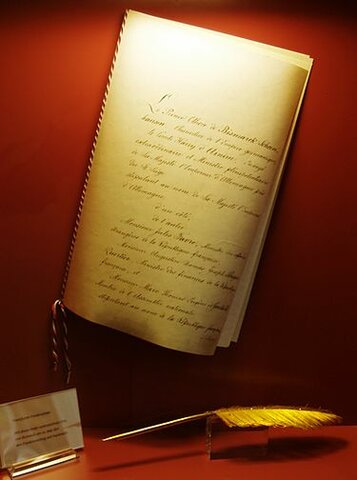 Le Prince Othon de Bismarck-Schoen-
hausen, Chancelier de l'Empire germanique,
le Comte Harry d'Arnim, Envoyé
extraordinaire et Ministre plénipotentiaire
de Sa Majesté l'Empereur d'Allemagne près
du St Siège,
stipulant au nom de Sa Majesté l'Empereur
d'Allemagne,
d'un côté,
de l'autre
Monsieur Jules Favre, Ministre des affaires
étrangères de la République française,
Monsieur Augustin Thomas Joseph Pouyer-
Quertier, Ministre des finances de la République
française, et
Monsieur Marc Thomas Eugène de Goulard,
Membre de l'Assemblée nationale,
stipulant au nom de la République française